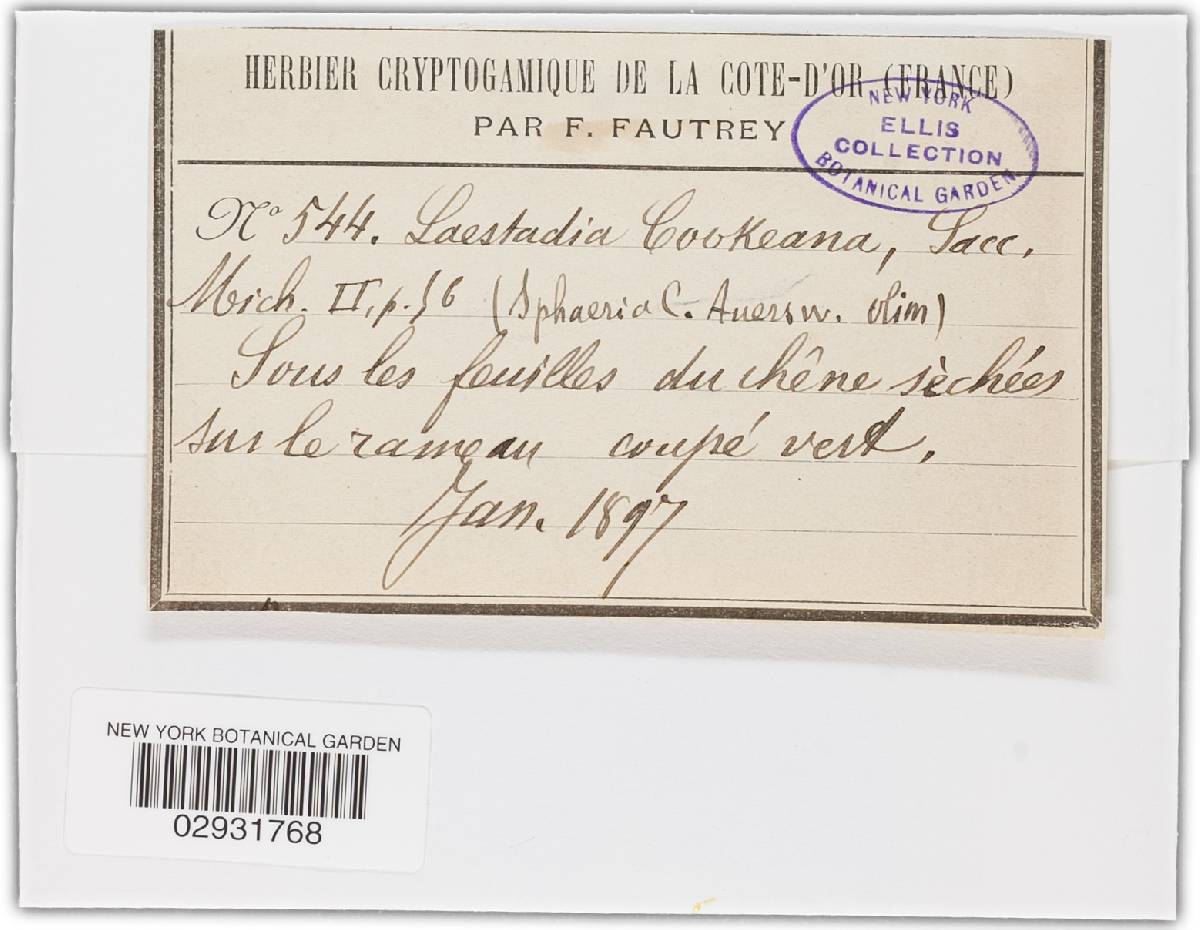 HERBIER CRYPTOGAMIQUE DE LA COTE-D'OR (FRANCE)
PAR F. FAUTREY
NEW YORK
ELLIS
COLLECTION
BOTANICAL GARDEN
No 544. Laestadia Cookeana, Sacc.
Mich. II, p. 56 (Sphaeria C. Auersw. olim)
Sous les feuilles du chêne sèchées
sur le rameau coupé vert.
Jan. 1897
NEW YORK BOTANICAL GARDEN
02931768